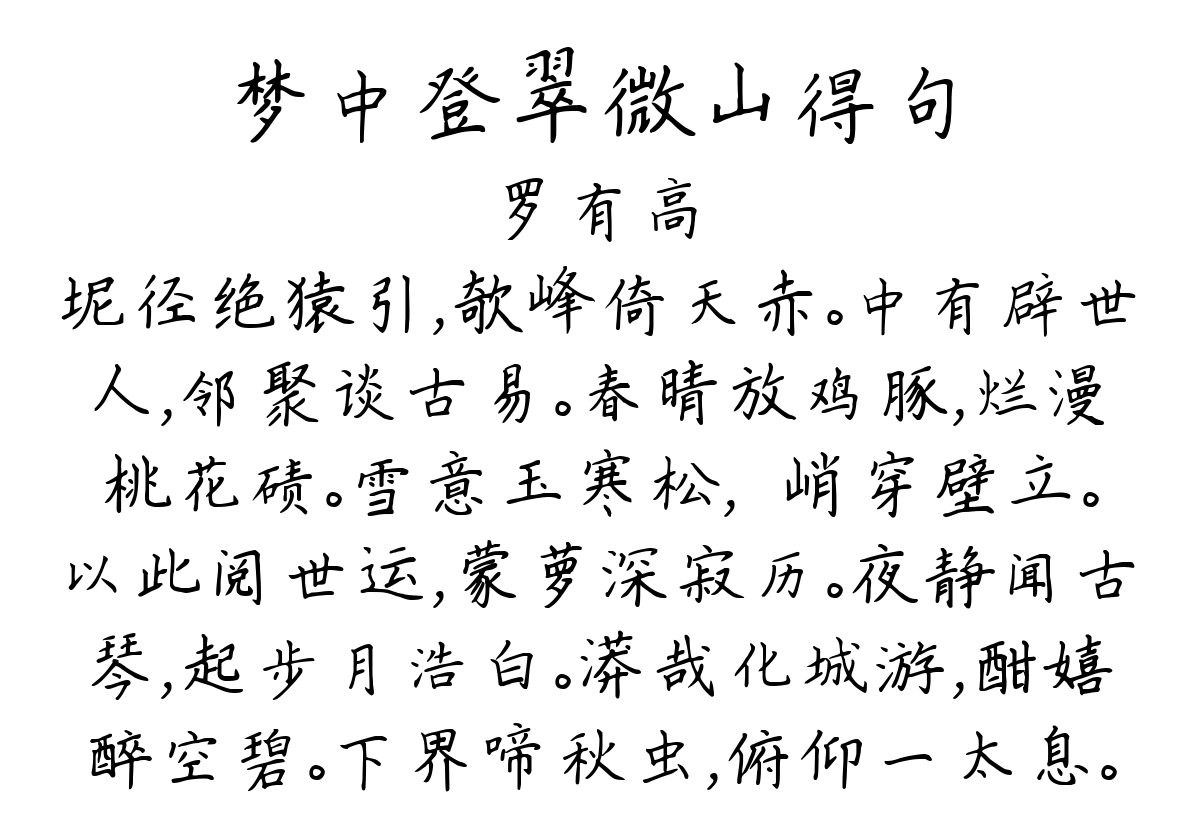 梦中登翠微山得句
罗有高
坭径绝猿引,欹峰倚天赤。中有辟世
人,邻聚谈古易。春晴放鸡豚,烂漫
桃花碛。雪意玉寒松,峭穿壁立。
以此阅世运,蒙萝深寂历。夜静闻古
琴,起步月浩白。漭哉化城游,酣嬉
醉空碧。下界啼秋虫,俯仰一太息。